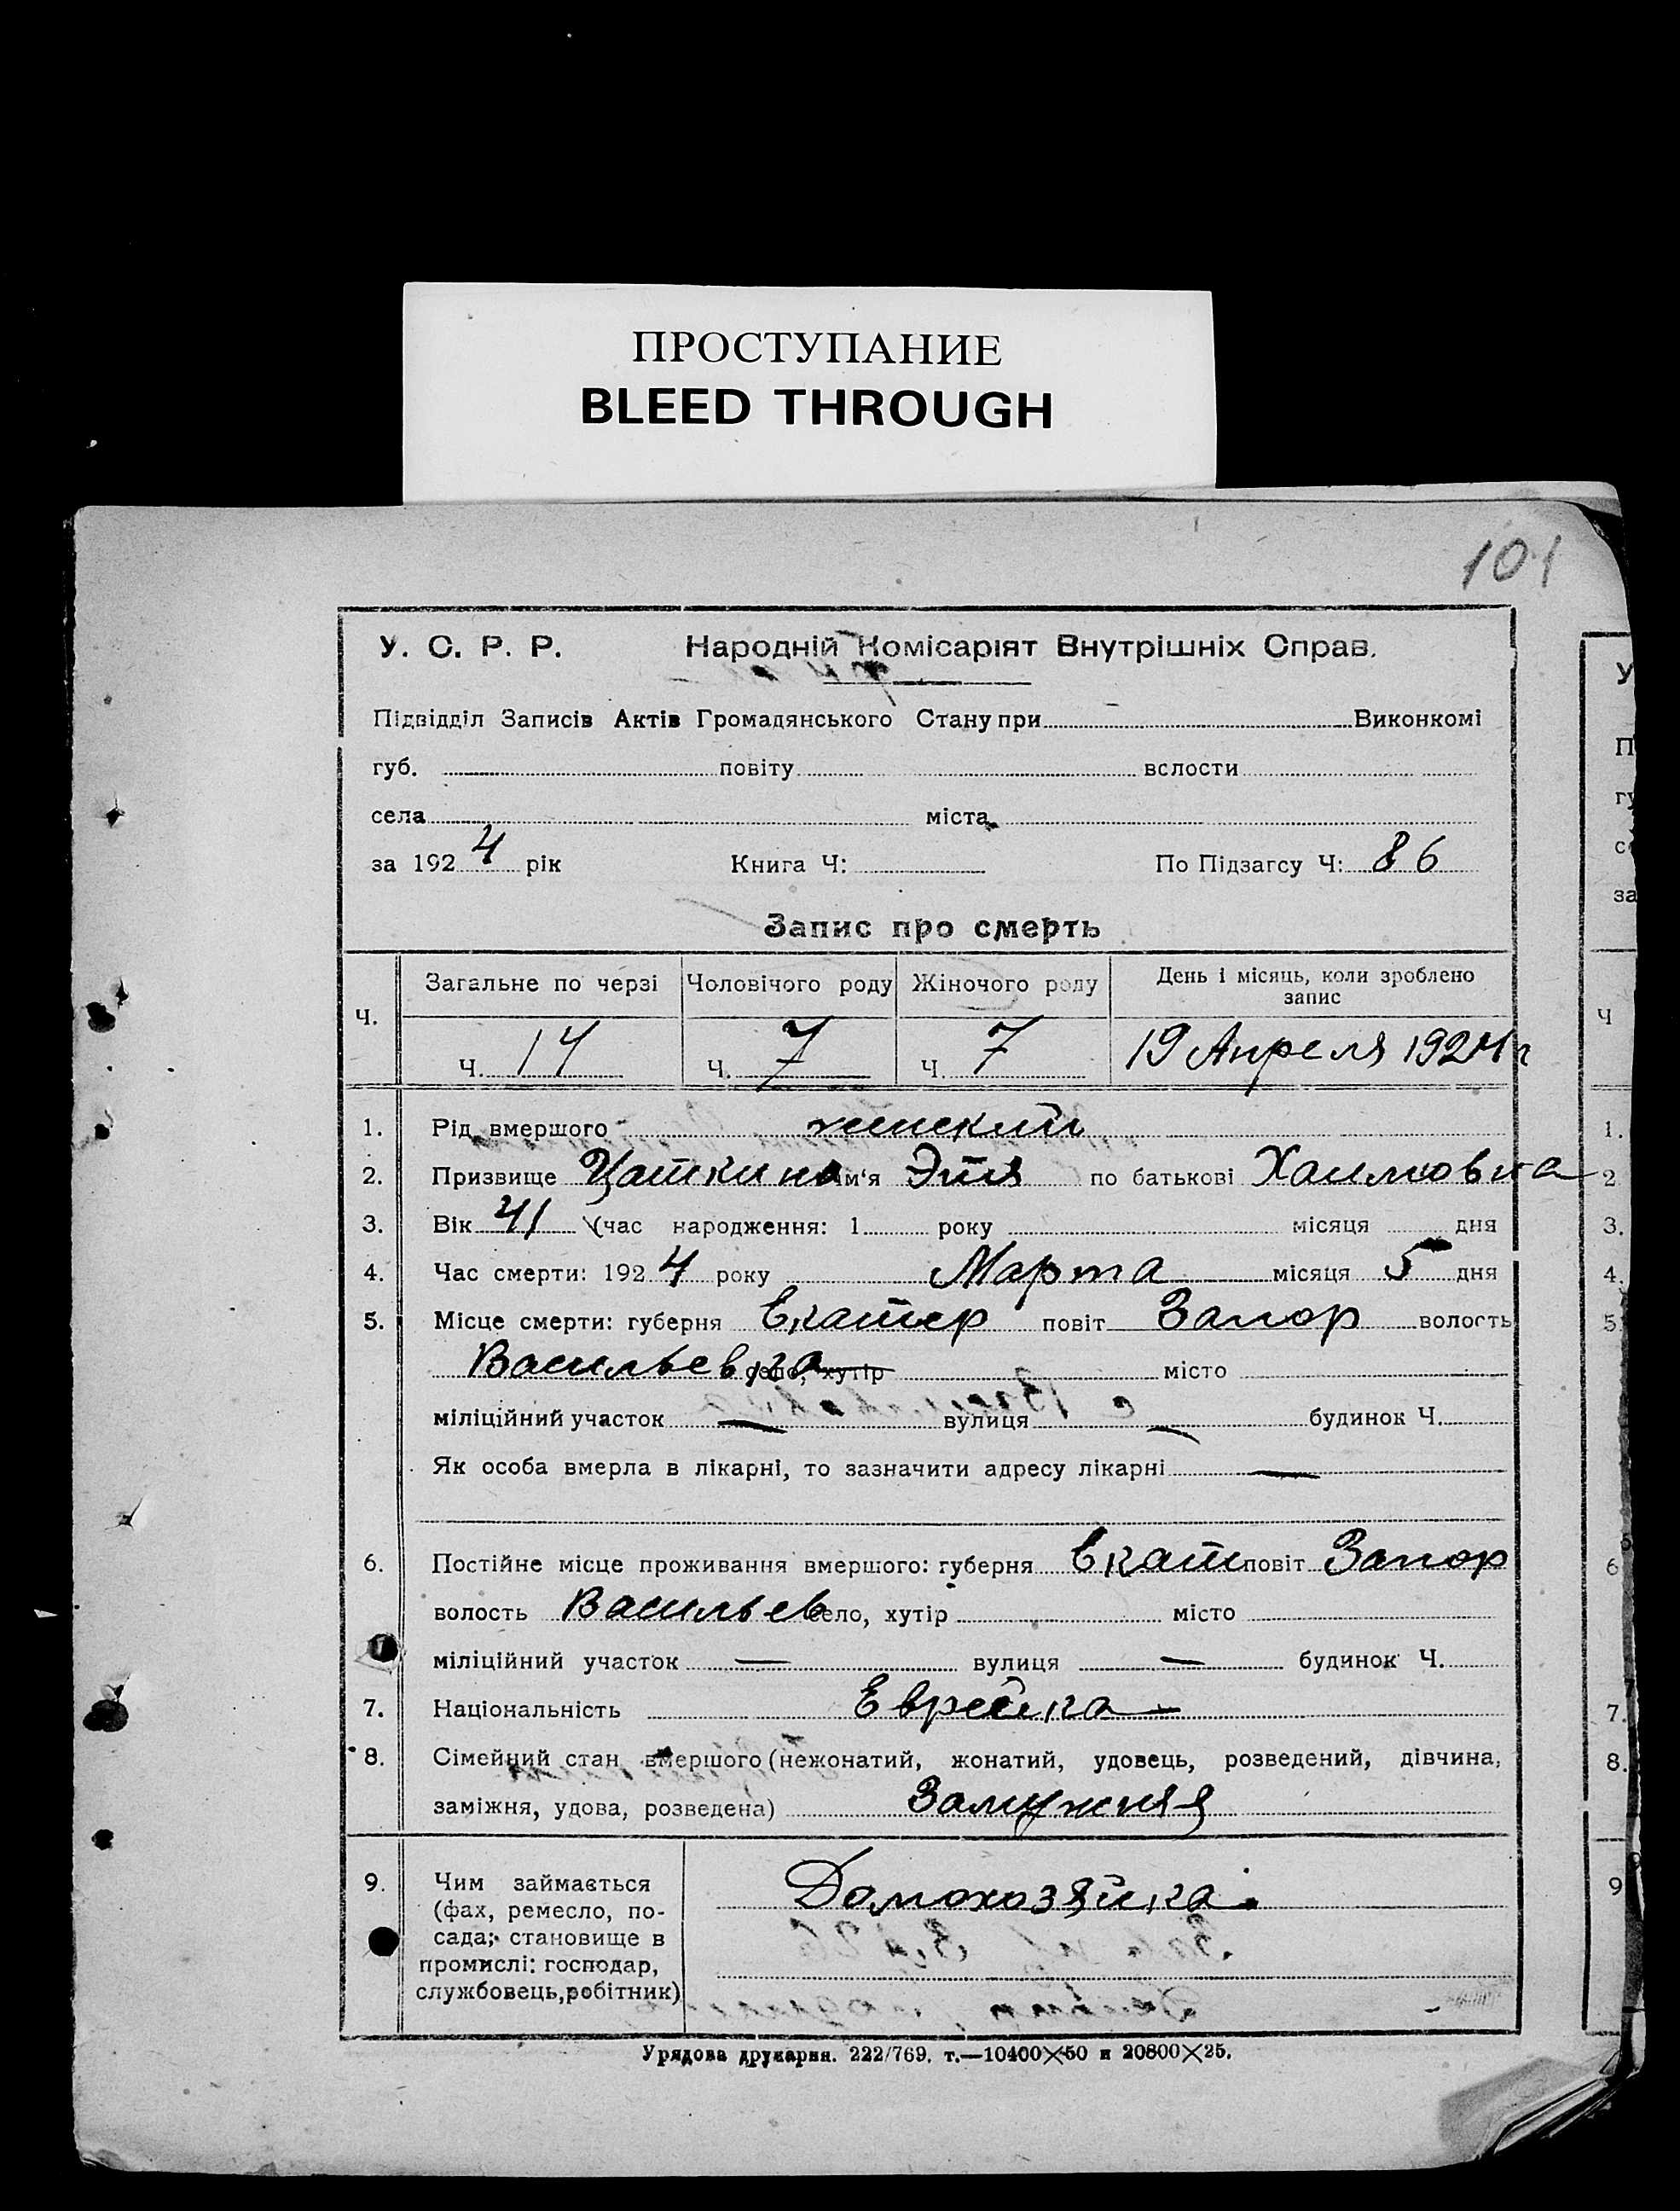 ПРОСТУПАНИЕ
BLEED THROUGH
101
У. С. Р. Р. Народній Комісаріят Внутрішніх Справ.
Підвідділ Записів Актів Громадянського Стану при Виконкомі
губ. повіту вслости
села міста
за 1924 рік Книга Ч: По Підзагсу Ч: 86
Запис про смерть
Ч. Загальне по черзі Чоловічого роду Жіночого роду День і місяць, коли зроблено запис
Ч. 14 Ч. 7 Ч. 7 19 Апреля 1924 г
1. Рід вмершого женский
2. Призвище Цаткина Ім'я Этя по батькові Хаимовна
3. Вік 41 (час народження: 1 року місяця дня
4. Час смерти: 1924 року Марта місяця 5 дня
5. Місце смерти: губерня Екатер повіт Запор волость
Васильевка село, хутір місто
міліційний участок — вулиця — будинок Ч.
Як особа вмерла в лікарні, то зазначити адресу лікарні —
6. Постійне місце проживання вмершого: губерня Екат повіт Запор
волость Васильев село, хутір місто
міліційний участок — вулиця — будинок Ч.
7. Національність Еврейка
8. Сімейний стан вмершого (нежонатий, жонатий, удовець, розведений, дівчина,
заміжня, удова, розведена) Замужняя
9. Чим займається
(фах, ремесло, по-
сада; становище в
промислі: господар,
службовець, робітник)
Домохозяйка.
Урядова друкарня. 222/769. т.—10400×50 и 20800×25.
У
П
гу
с
за
Ч
1.
2
3.
4.
5
6
7.
8.
9